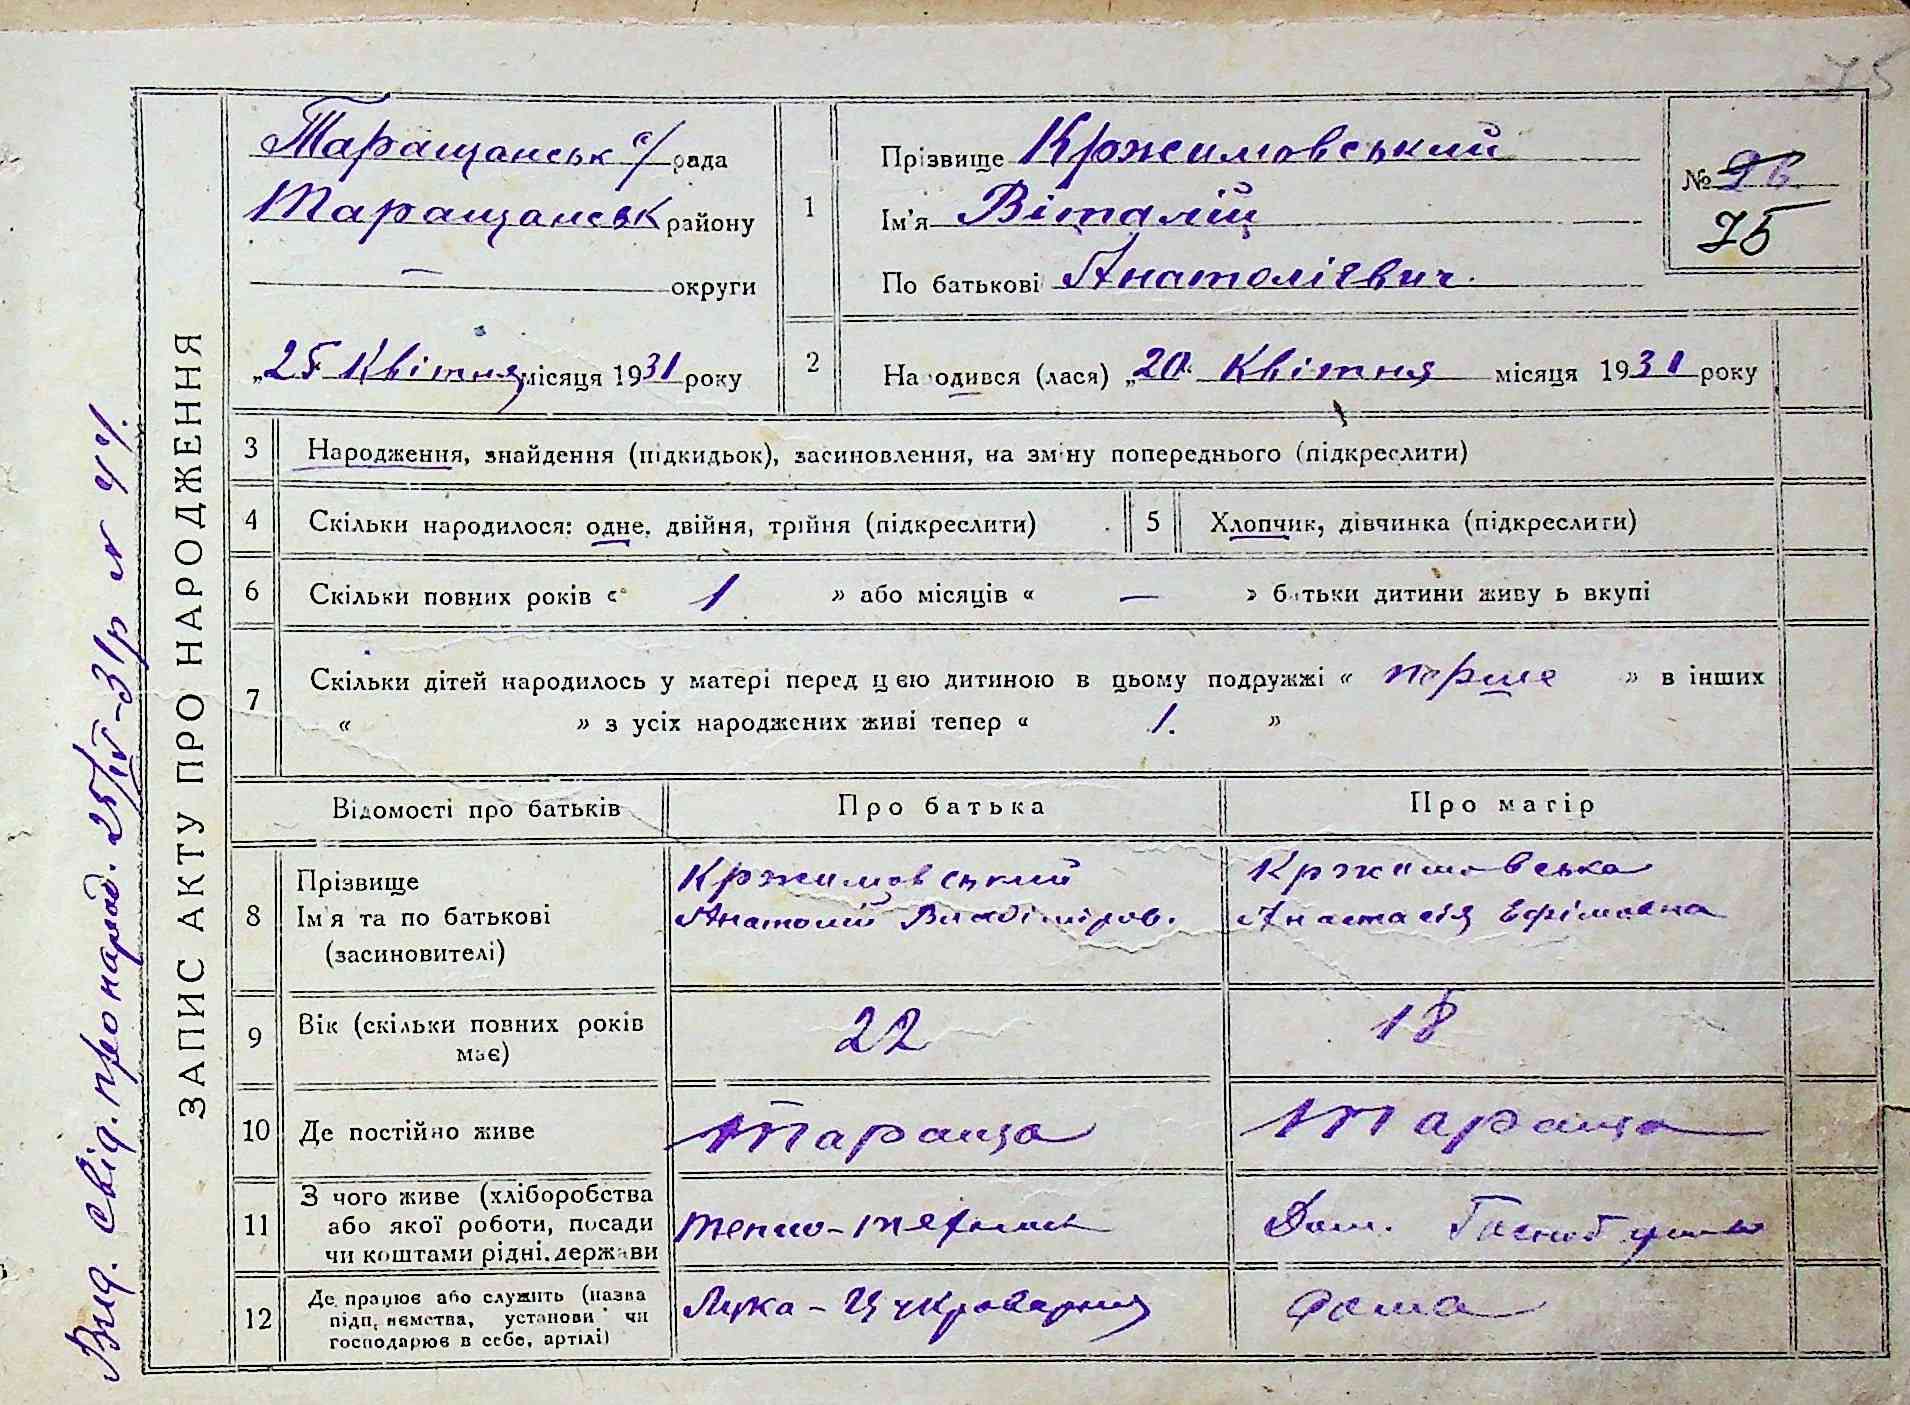 75
ЗАПИС АКТУ ПРО НАРОДЖЕННЯ
Вид. свід. про народ. 25/IV-31р N 44.
Таращанськ с/рада
Таращанськ району
— округи
„25 Квітня місяця 1931 року
1
Прізвище Кржимовський
Ім'я Віталій
По батькові Анатолієвич.
№ 96
75
2
Народився (лася) „20 Квітня місяця 1931 року
3 Народження, знайдення (підкидьок), засиновлення, на зміну попереднього (підкреслити)
4 Скільки народилося: одне, двійня, трійня (підкреслити)
5 Хлопчик, дівчинка (підкреслити)
6 Скільки повних років « 1 » або місяців « — » батьки дитини живуть вкупі
7 Скільки дітей народилось у матері перед цією дитиною в цьому подружжі « перше » в інших
« » з усіх народжених живі тепер « 1. »
Відомості про батьків Про батька Про матір
8 Прізвище
Ім'я та по батькові
(засиновителі)
Кржимовський
Анатолій Владімиров.
Кржимовська
Анастасія Єфімовна
9 Вік (скільки повних років
має)
22
18
10 Де постійно живе
Тараща
Тараща
11 З чого живе (хліборобства
або якої роботи, посади
чи коштами рідні, держави
Дом.
12 Де працює або служить (назва
підприємства, установи чи
господарює в себе, артілі)
Лука - Цукроварня
дома